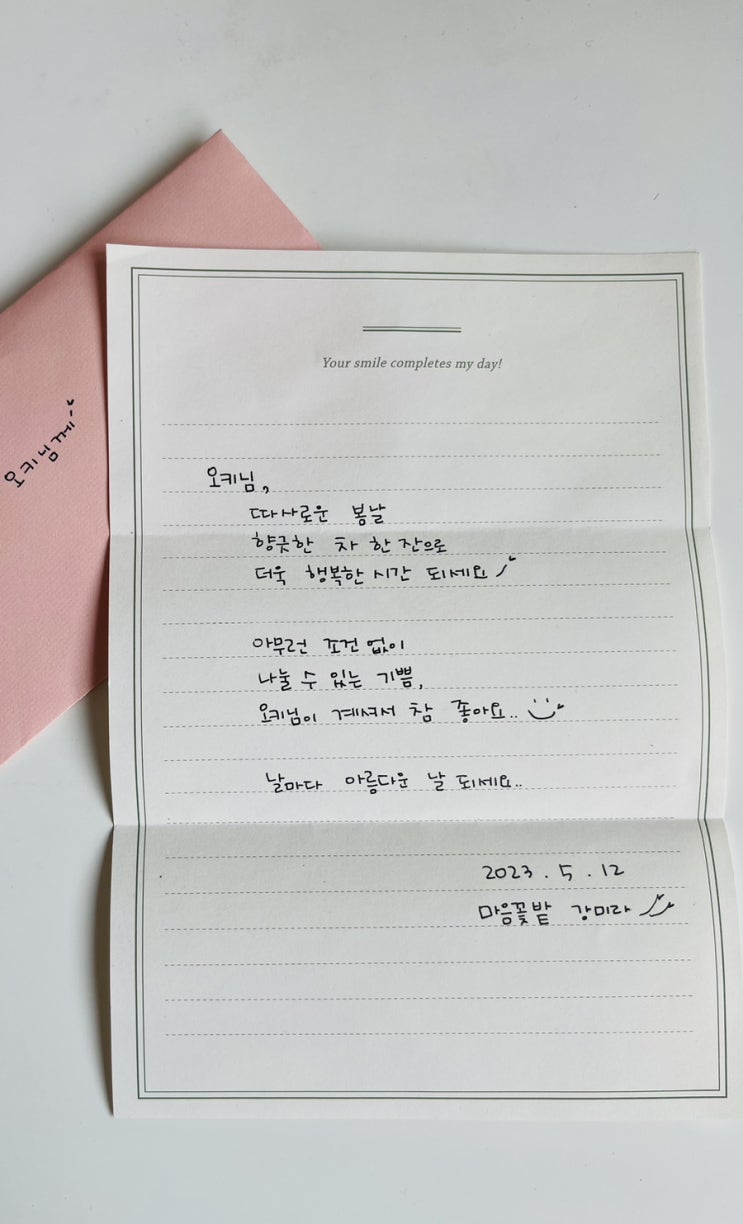 오키님께
Your smile completes my day!
오키님,
따사로운 봄날
향긋한 차 한 잔으로
더욱 행복한 시간 되세요
아무런 조건 없이
나눌 수 있는 기쁨,
오키님이 계셔서 참 좋아요..
날마다 아름다운 날 되세요..
2023. 5. 12
마음꽃밭 강미라